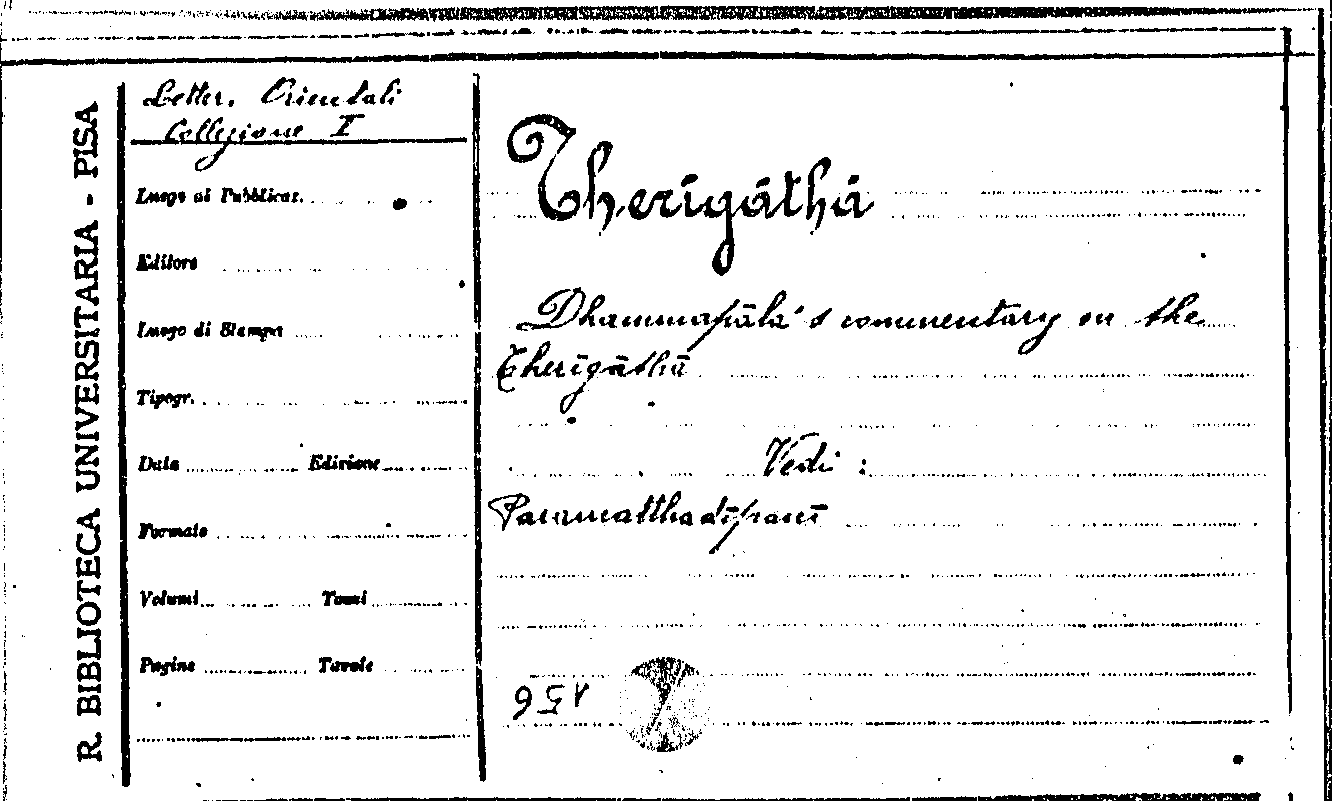 R. BIBLIOTECA UNIVERSITARIA - PISA
Letter. Orientali
Collezione I
Luogo di Pubblicaz.
Editore
Luogo di Stampa
Tipogr.
Data Edizione
Formato
Volumi Tomi
Pagine Tavole
Therīgāthā
Dhammapāla's commentary on the
Therīgāthā
Vedi :
Paramatthadīpanī